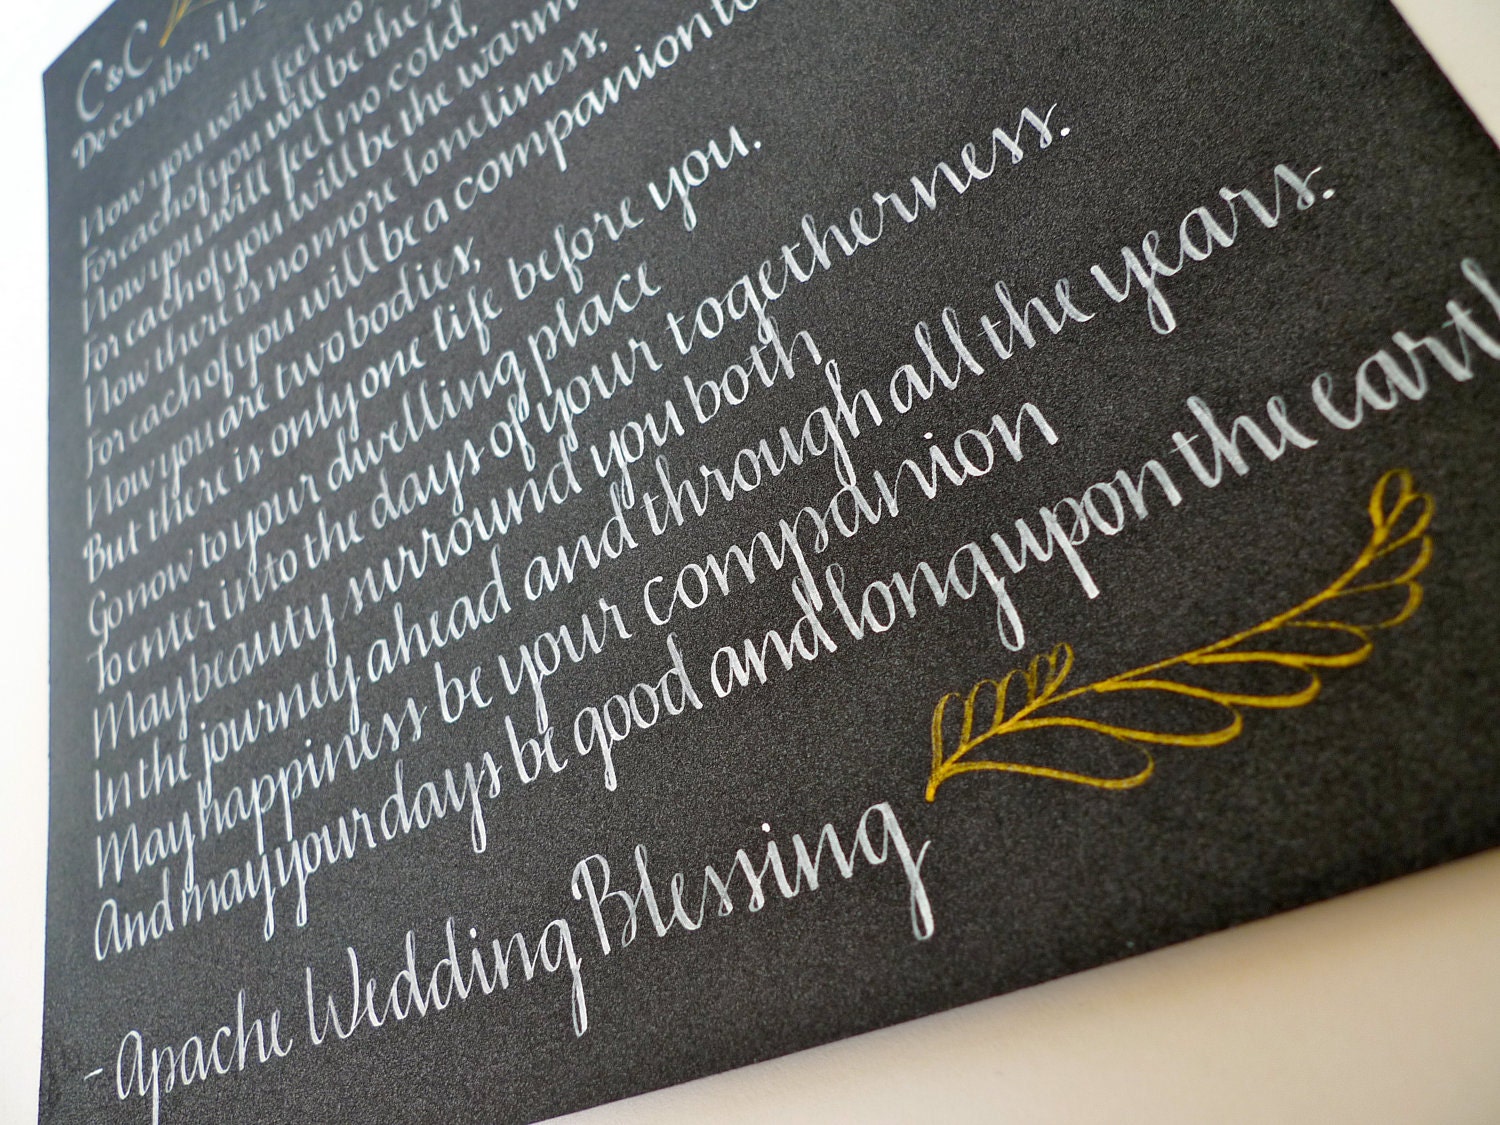 C & C
December 11, 2
Now you will feel no
For each of you will be the
Now you will feel no cold,
For each of you will be the warm
Now there is no more loneliness,
For each of you will be a companion to
Now you are two bodies,
But there is only one life before you.
Go now to your dwelling place
To enter into the days of your togetherness.
May beauty surround you both
In the journey ahead and through all the years.
May happiness be your companion
And may your days be good and long upon the earth
- Apache Wedding Blessing